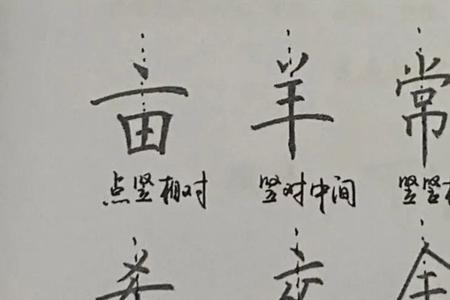 亩 羊 常
点竖相对 竖对中间 竖竖
希 夜 全